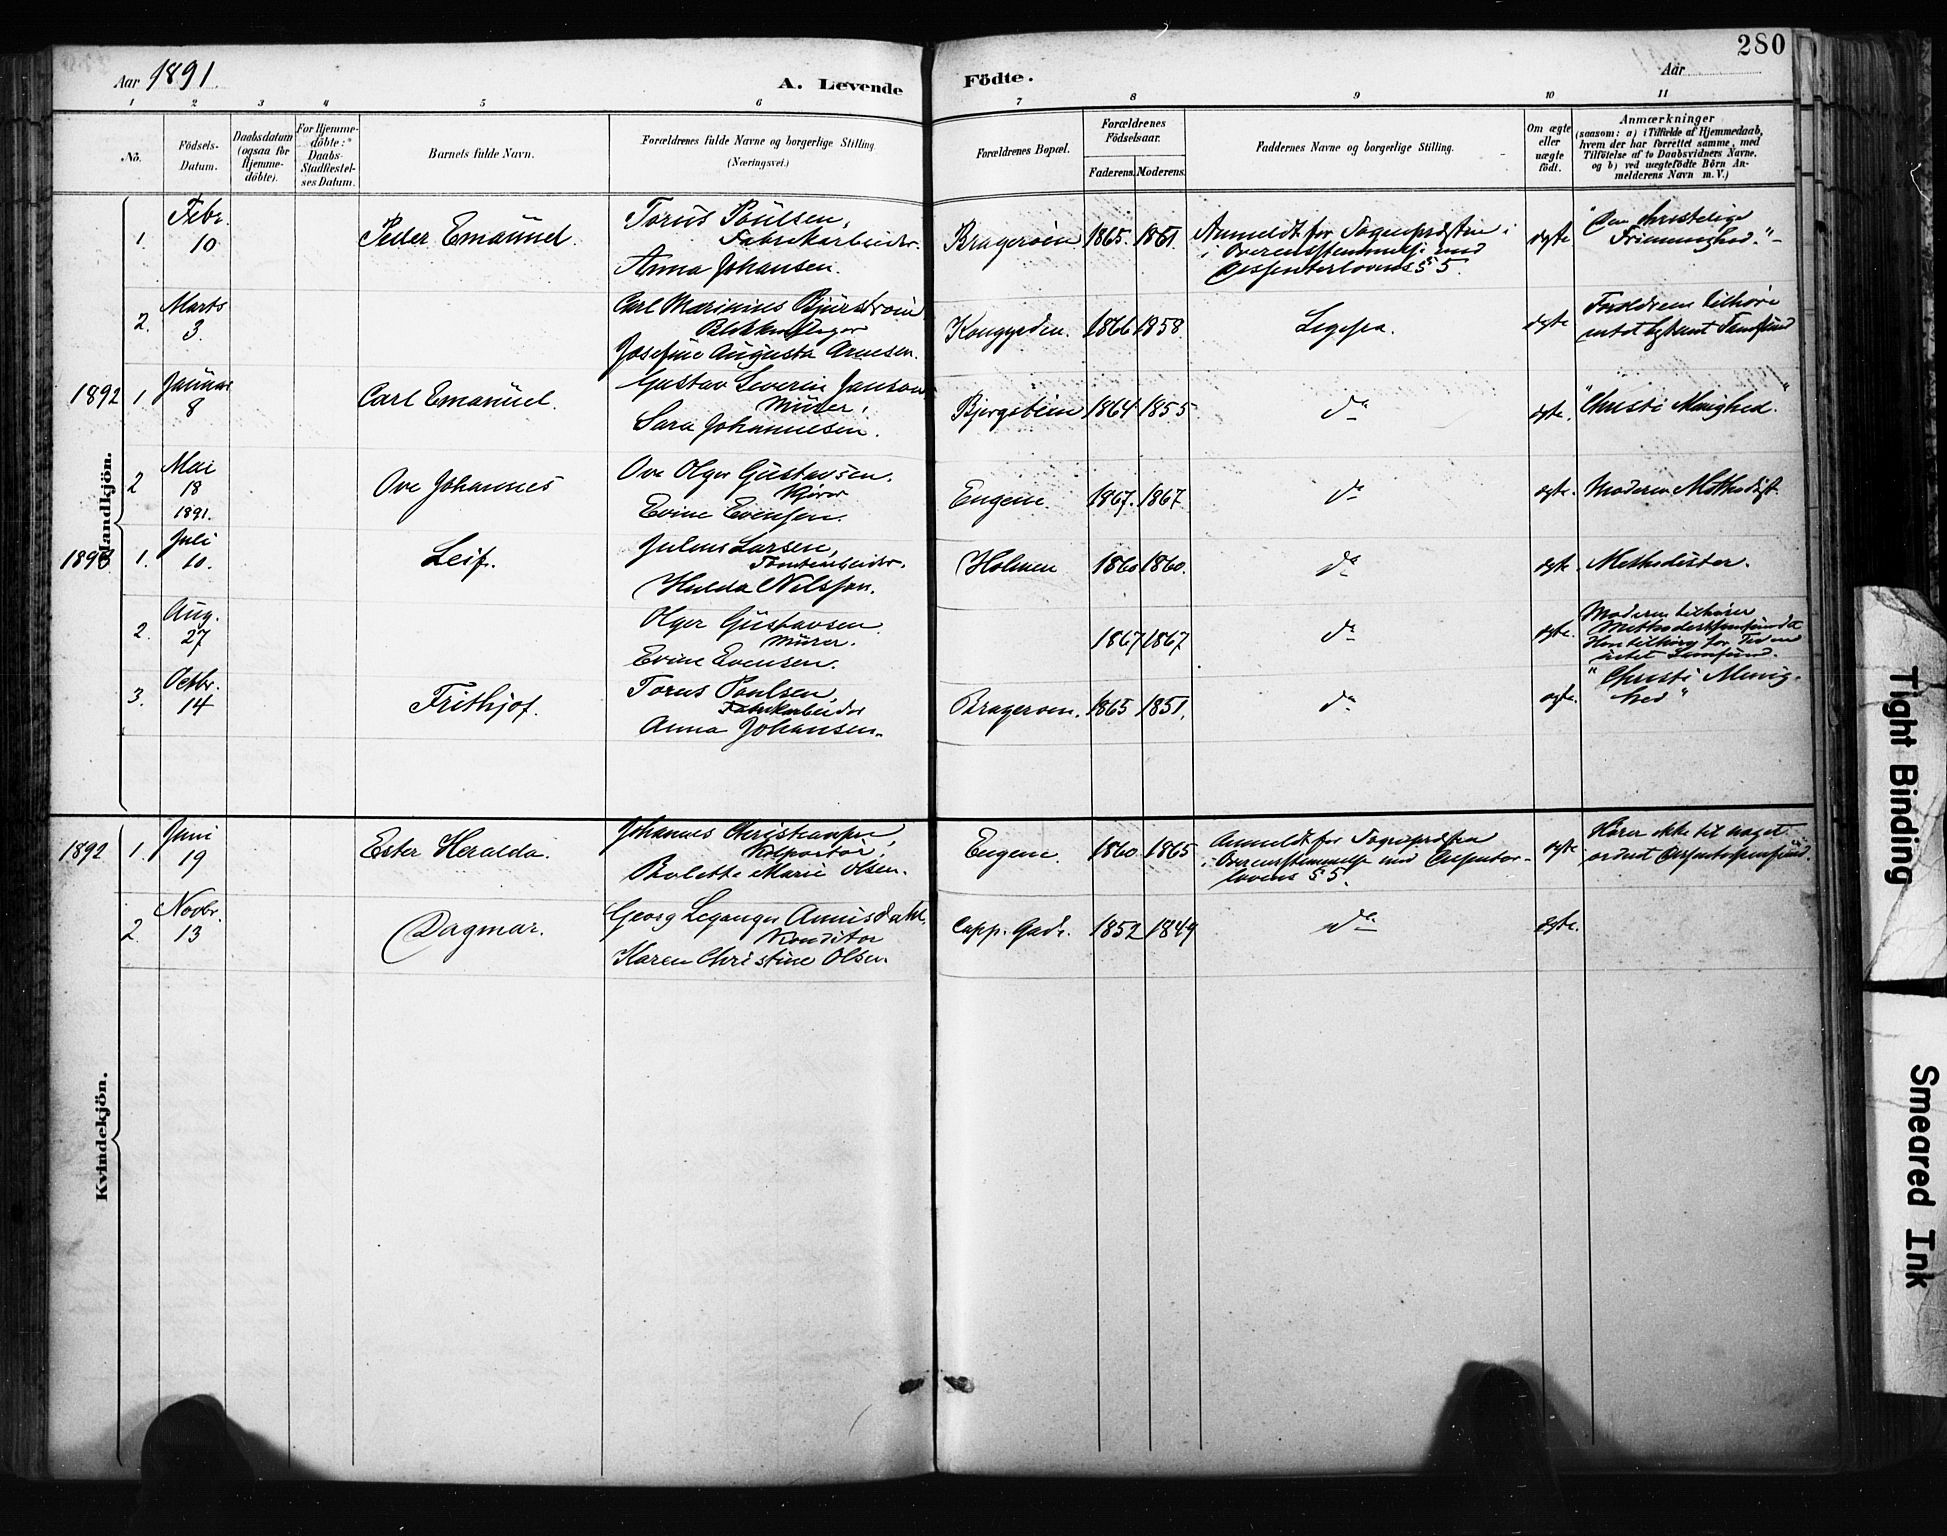 280
Aar 1891
A. Levende
Födte.
Aar
1 2 3 4 5 6 7 8 9 10 11
No.
Födsels-
Datum.
Daabsdatum
(ogsaa for
Hjemme-
döbte).
For Hjemme-
döbte:*
Daabs-
Stadfæstel-
ses Datum.
Barnets fulde Navn.
Forældrenes fulde Navne og borgerlige Stilling
(Næringsvei.)
Forældrenes Bopæl.
Forældrenes
Födselsaar.
Faderens. Moderens.
Faddernes Navne og borgerlige Stilling.
Om ægte
eller
uægte
födt.
Anmærkninger
(saasom: a) i Tilfælde af Hjemmedaab,
hvem der har forrettet samme, med
Tilföielse af to Daabsvidners Navne,
og b) ved uægtefödte Börn An-
melderens Navn m. V.)
Mandkjön.
1. Febr. 10
Peder Emanuel.
Torus Poulsen,
Fabrikarbeider.
Anna Johansen.
Bragerøen 1865. 1851.
Anmeldt for Sognepræsten i
Overensstemmelse med
Dissenterlovens § 5.
ægte
"Den christelige
Frimenighed."
2. Marts 3.
Carl Marinius Bjurstrøm
Josefine Augusta Arnesen.
1866 1858
Ligesaa.
ægte
Forældrene tilhøre
intet bestemt Samfund
1892 1 Januar 8
Carl Emanuel.
Gustav Severin Janson
Murer,
Sara Johannesen.
1864 1855
do
ægte.
"Christi Menighed."
2 Mai 18 1891.
Ove Johannes
Ove Olger Gustavsen.
Evine Evensen.
Engene. 1867. 1867.
do
ægte.
Moderen Methodist.
1893 1. Juli 10.
Leif.
Julius Larsen,
Hulda Nilssen.
Holmen 1860 1860.
do
ægte.
Methodister.
2. Aug. 27
Olger Gustavsen.
Murer.
Evine Evensen.
1867 1867
do
ægte.
Moderen tilhører
Methodistsamfundet
intet Samfund.
3. Octbr. 14
Frithjof.
Torus Poulsen,
Fabrikarbeider
Anna Johansen.
Bragerøen. 1865 1851.
do
ægte.
"Christi Menig-
hed"
Kvindekjön.
1892 1. Juni 19
Ester Heralda.
Johannes Christiansen,
Kolportør,
Bolette Marie Olsen.
Engene. 1860. 1865
Anmeldt for Sognepræsten
i Overensstemmelse med Dissenter-
lovens § 5.
ægte
Hører ikke til noget
ordnet Dissentersamfund.
2. Novbr. 13
Dagmar.
Georg Leganger Amisdahl,
Konditor
Karen Christine Olsen.
Capp. Gade. 1852 1849
do
ægte.
Tight Binding
Smeared Ink